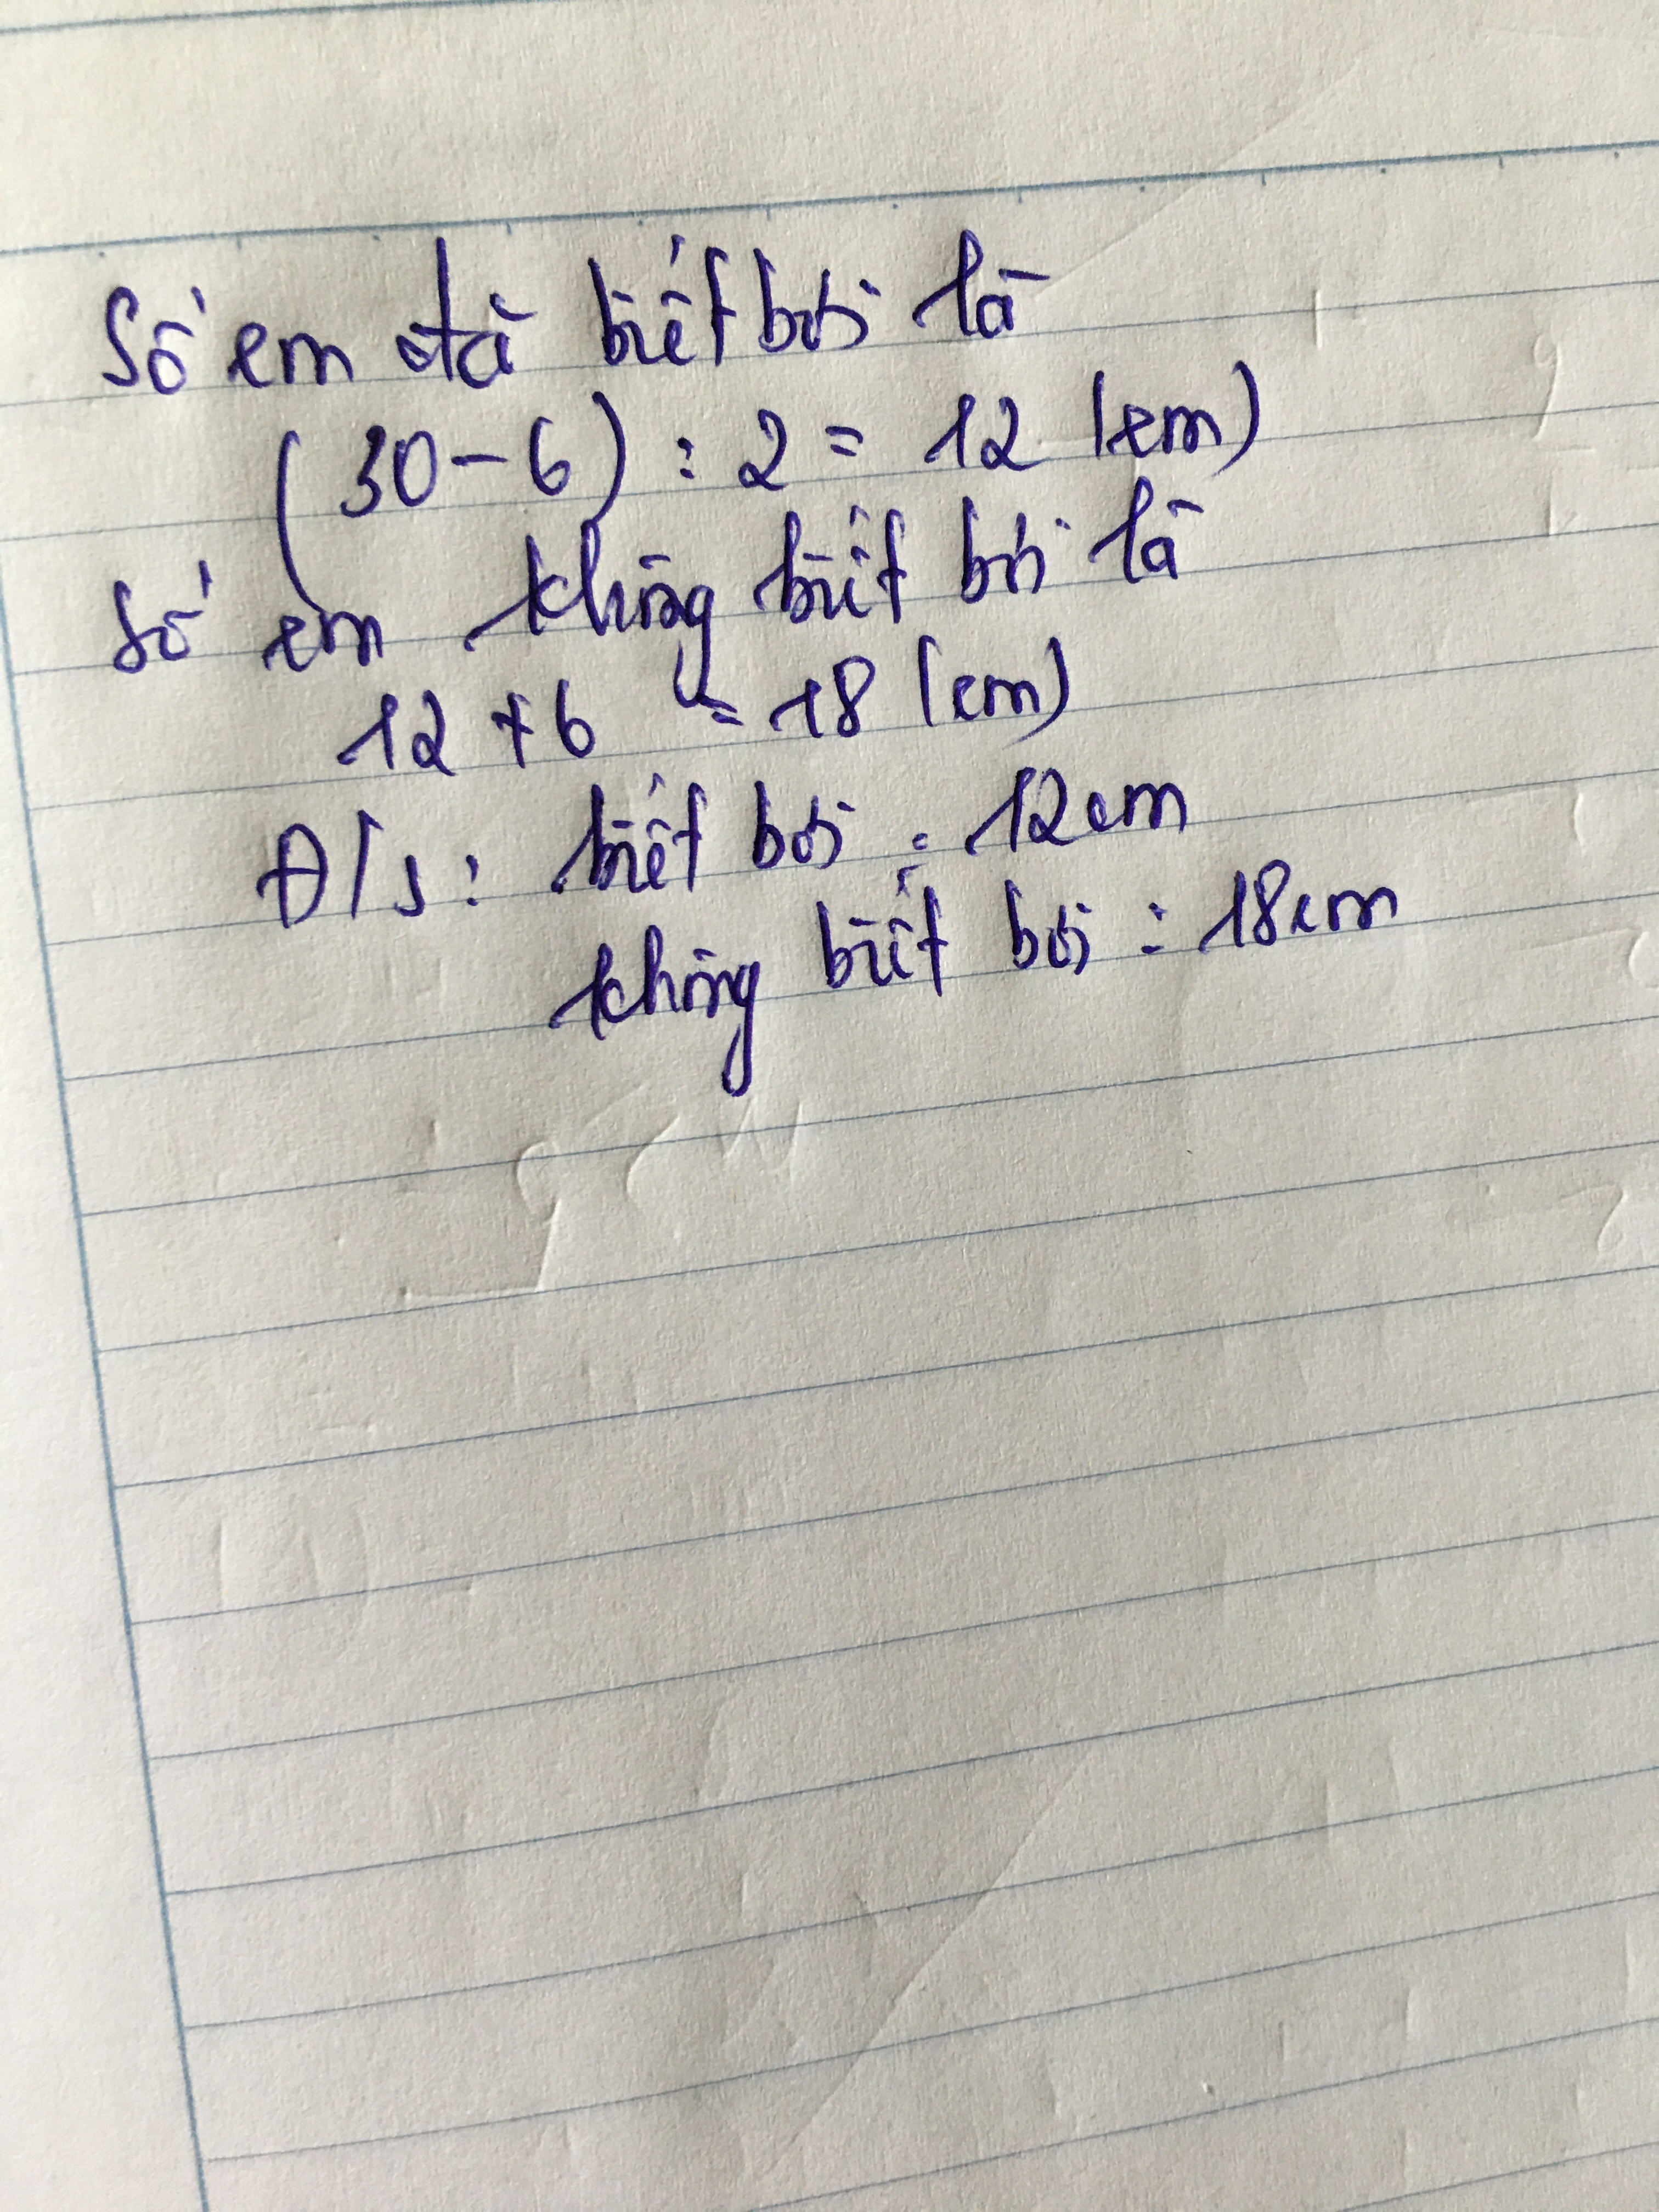 Số em đã biết bơi là
(30 - 6) : 2 = 12 (em)
Số em không biết bơi là
12 + 6 = 18 (em)
Đ/s: biết bơi : 12em
không biết bơi : 18em